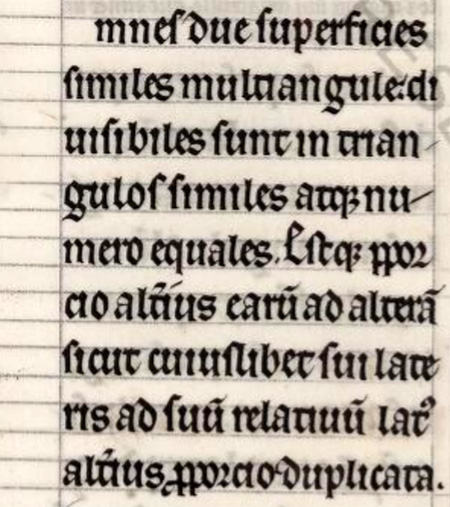 mneſ due ſuperficies
ſimiles multiangule: di
uiſibiles ſunt in trian
guloſ ſimiles atqꝫ nu
mero equales. Eſtqꝫ ꝓpor
cio alt̄ius earū ad alterā
ſicut cuiuſlibet ſui late
ris ad ſuū relatiuū lat᾽
alt̄ius ꝓporcio duplicata.